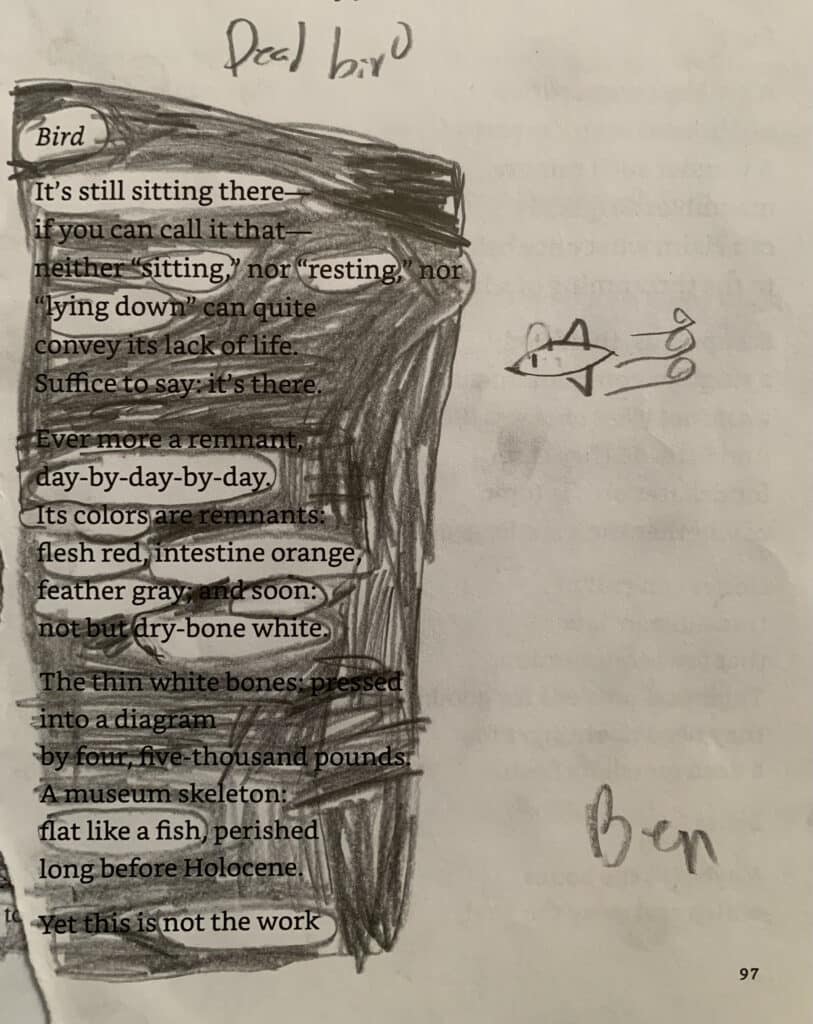 Dead bird
Bird
It's still sitting there—
if you can call it that—
neither “sitting,” nor “resting,” nor
“lying down” can quite
convey its lack of life.
Suffice to say: it's there.
Ever more a remnant,
day-by-day-by-day.
Its colors are remnants:
flesh red, intestine orange,
feather gray; and soon:
not but dry-bone white.
The thin white bones; pressed
into a diagram
by four, five-thousand pounds.
A museum skeleton:
flat like a fish, perished
long before Holocene.
Yet this is not the work
Ben
97